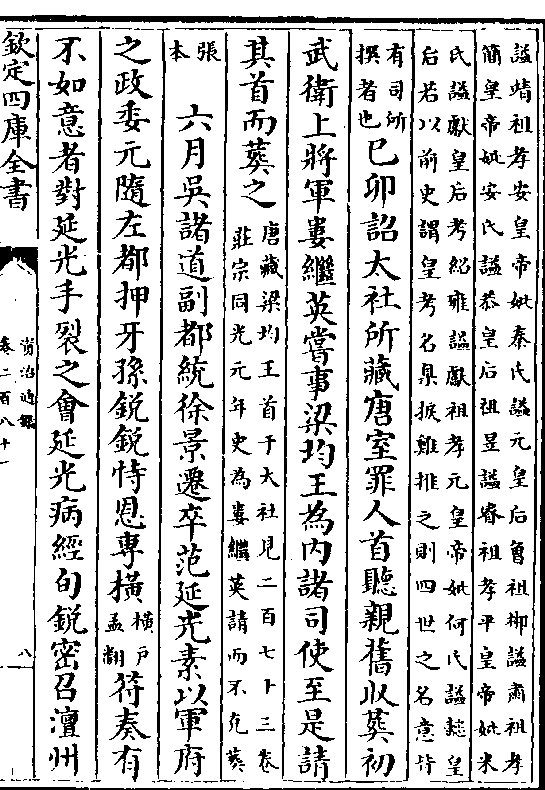 謚靖祖孝安皇帝妣秦氏謚元皇后曾祖郴謚肅祖孝
簡皇帝妣安氏謚恭皇后祖昱謚睿祖孝平皇帝妣米
氏謚獻皇后考紹雍謚獻祖孝元皇帝妣何氏謚懿皇
后若以前史謂皇考名臬捩雞推之則四世之名意皆
有司所
撰者也
己卯詔太社所藏唐室罪人首聽親舊收葬初
武衛上將軍婁繼英嘗事梁均王為内諸司使至是請
其首而葬之
唐藏梁均王首于太社見二百七十三卷
莊宗同光元年史為婁繼英請而不克葬
張
本
六月吳諸道副都統徐景遷卒范延光素以軍府
之政委元隨左都押牙孫鋭鋭恃恩專橫
橫戸
孟翻
符奏有
不如意者對延光手裂之會延光病經旬鋭密召澶州
欽定四庫全書
資治通鑑
卷二百八十一
八